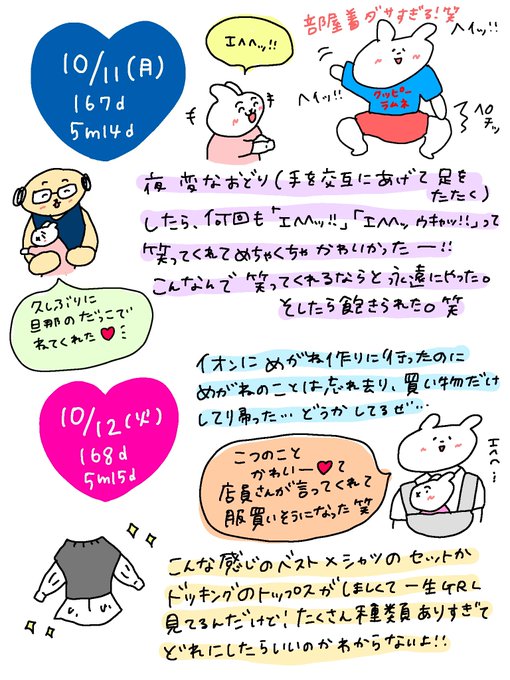 10/11(月)
167d
5m14d
エヘヘッ!!
部屋着ダサすぎる!笑
ヘイッ!!
ヘイッ!!
クッピー
ラムネ
ペチッ
夜 変なおどり(手を交互にあげて 足を
たたく)
したら、何回も「エヘヘッ!!」「エヘヘッ ウキャッ!!」って
笑ってくれてめちゃくちゃ かわいかったー!!
こんなんで 笑ってくれるならと永遠にやった。
そしたら飽きられた。笑
久しぶりに
旦那のだっこで
ねてくれた♥
10/12(火)
168d
5m15d
イオンに めがね作りに行ったのに
めがねのことは忘れ去り、買い物だけ
して帰った… どうかしてるぜ…
こつのこと
かわいー♥て
店員さんが言ってくれて
服買いそうになった 笑
エヘヘ…
こんな感じのベスト×シャツの セットか
ドッキングのトップスがほしくて 一生GRL
見てるんだけど!たくさん種類ありすぎて
どれにしたらいいのかわからないよ!!